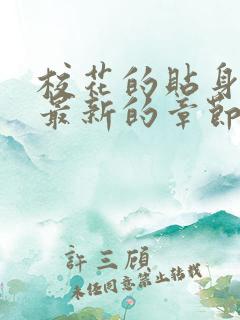 校花的贴身
最新的章節
許三顧
未经同意禁止转载